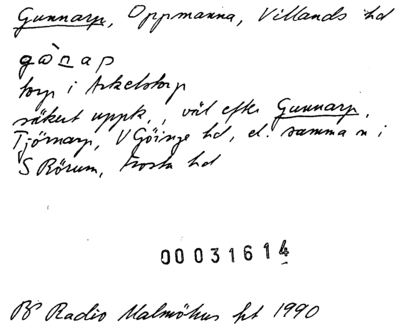 Gunnarp, Oppmanna, Villands hd
gànap
torp i Arkelstorp
säkert uppk., väl efter Gunnarp,
Tjörnarp, V Göinge hd, el. samma n i
S Rörum, Frosta hd
00031614
BS Radio Malmöhus ht 1990